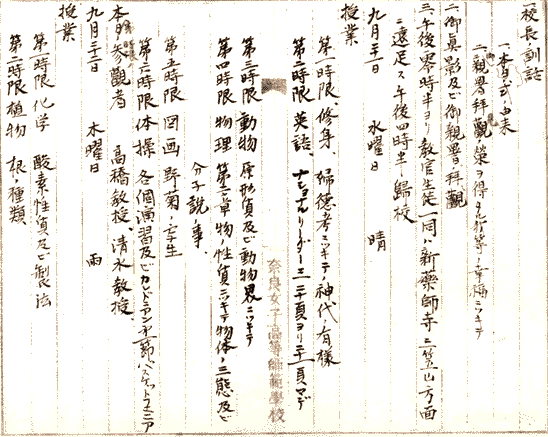 校長訓話
一、本日式ノ由来
二、親署拝観ノ栄ヲ得タル行等ノ幸福ニツキテ
二、御真影及ビ御親署ノ拝観
三、午後零時半ヨリ教官生徒一同ハ新薬師寺三笠山方面
ニ遠足ス午後四時半帰校
九月二十一日 水曜日 晴
授業
第一時限、修身、婦徳考ニツキテ、神代ノ有様
第二時限 英語、ナショナルリーダー三 二十頁ヨリ二十一頁マデ
第三時限 動物 原形質及ビ動物界ニツキテ
第四時限 物理 第二章 物ノ性質ニツキテ物体ノ三態及ビ
分子説ノ事
第五時限 図画 野菊ノ写生
第六時限 体操 各個演習及ビ
本日参観者 高橋教授、清水教授
九月二十二日 木曜日 雨
授業
第一時限 化学 酸素性質及ビ製法
第二時限 植物 根ノ種類
奈良女子高等師範学校